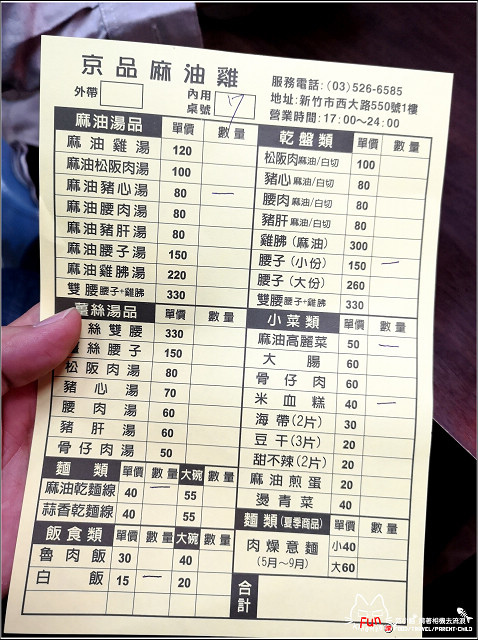 京品麻油雞
外帶
內用
桌號 7
服務電話:(03)526-6585
地址:新竹市西大路550號1樓
營業時間:17:00~24:00
麻油湯品 單價 數量
麻油雞湯 120
麻油松阪肉湯 100
麻油豬心湯 80 一
麻油腰肉湯 80
麻油豬肝湯 80
麻油腰子湯 150
麻油雞胇湯 220
雙腰腰子+雞胇 330
薑絲湯品 單價 數量
絲雙腰 330
絲腰子 150
松阪肉湯 80
豬心湯 70
腰肉湯 60
豬肝湯 60
骨仔肉湯 50
麵類 單價 數量 大碗 數量
麻油乾麵線 40 一 55
蒜香乾麵線 40 55
飯食類 單價 數量 大碗 數量
魯肉飯 30 40
白飯 15 一 20
乾盤類 單價 數量
松阪肉麻油/白切 100
豬心麻油/白切 80
腰肉麻油/白切 80
豬肝麻油/白切 80
雞胇(麻油) 300
腰子(小份) 150 一
腰子(大份) 260
雙腰腰子+雞胇 330
小菜類 單價 數量
麻油高麗菜 50 一
大腸 60
骨仔肉 60
米血糕 40 一
海帶(2片) 30
豆干(3片) 20
甜不辣(2片) 20
麻油煎蛋 20
燙青菜 40
麵類(夏季商品) 單價 數量
肉燥意麵 小40
(5月~9月) 大60
合計
Fun
帶著相機去流浪
TRAVEL/PARENT-CHILD